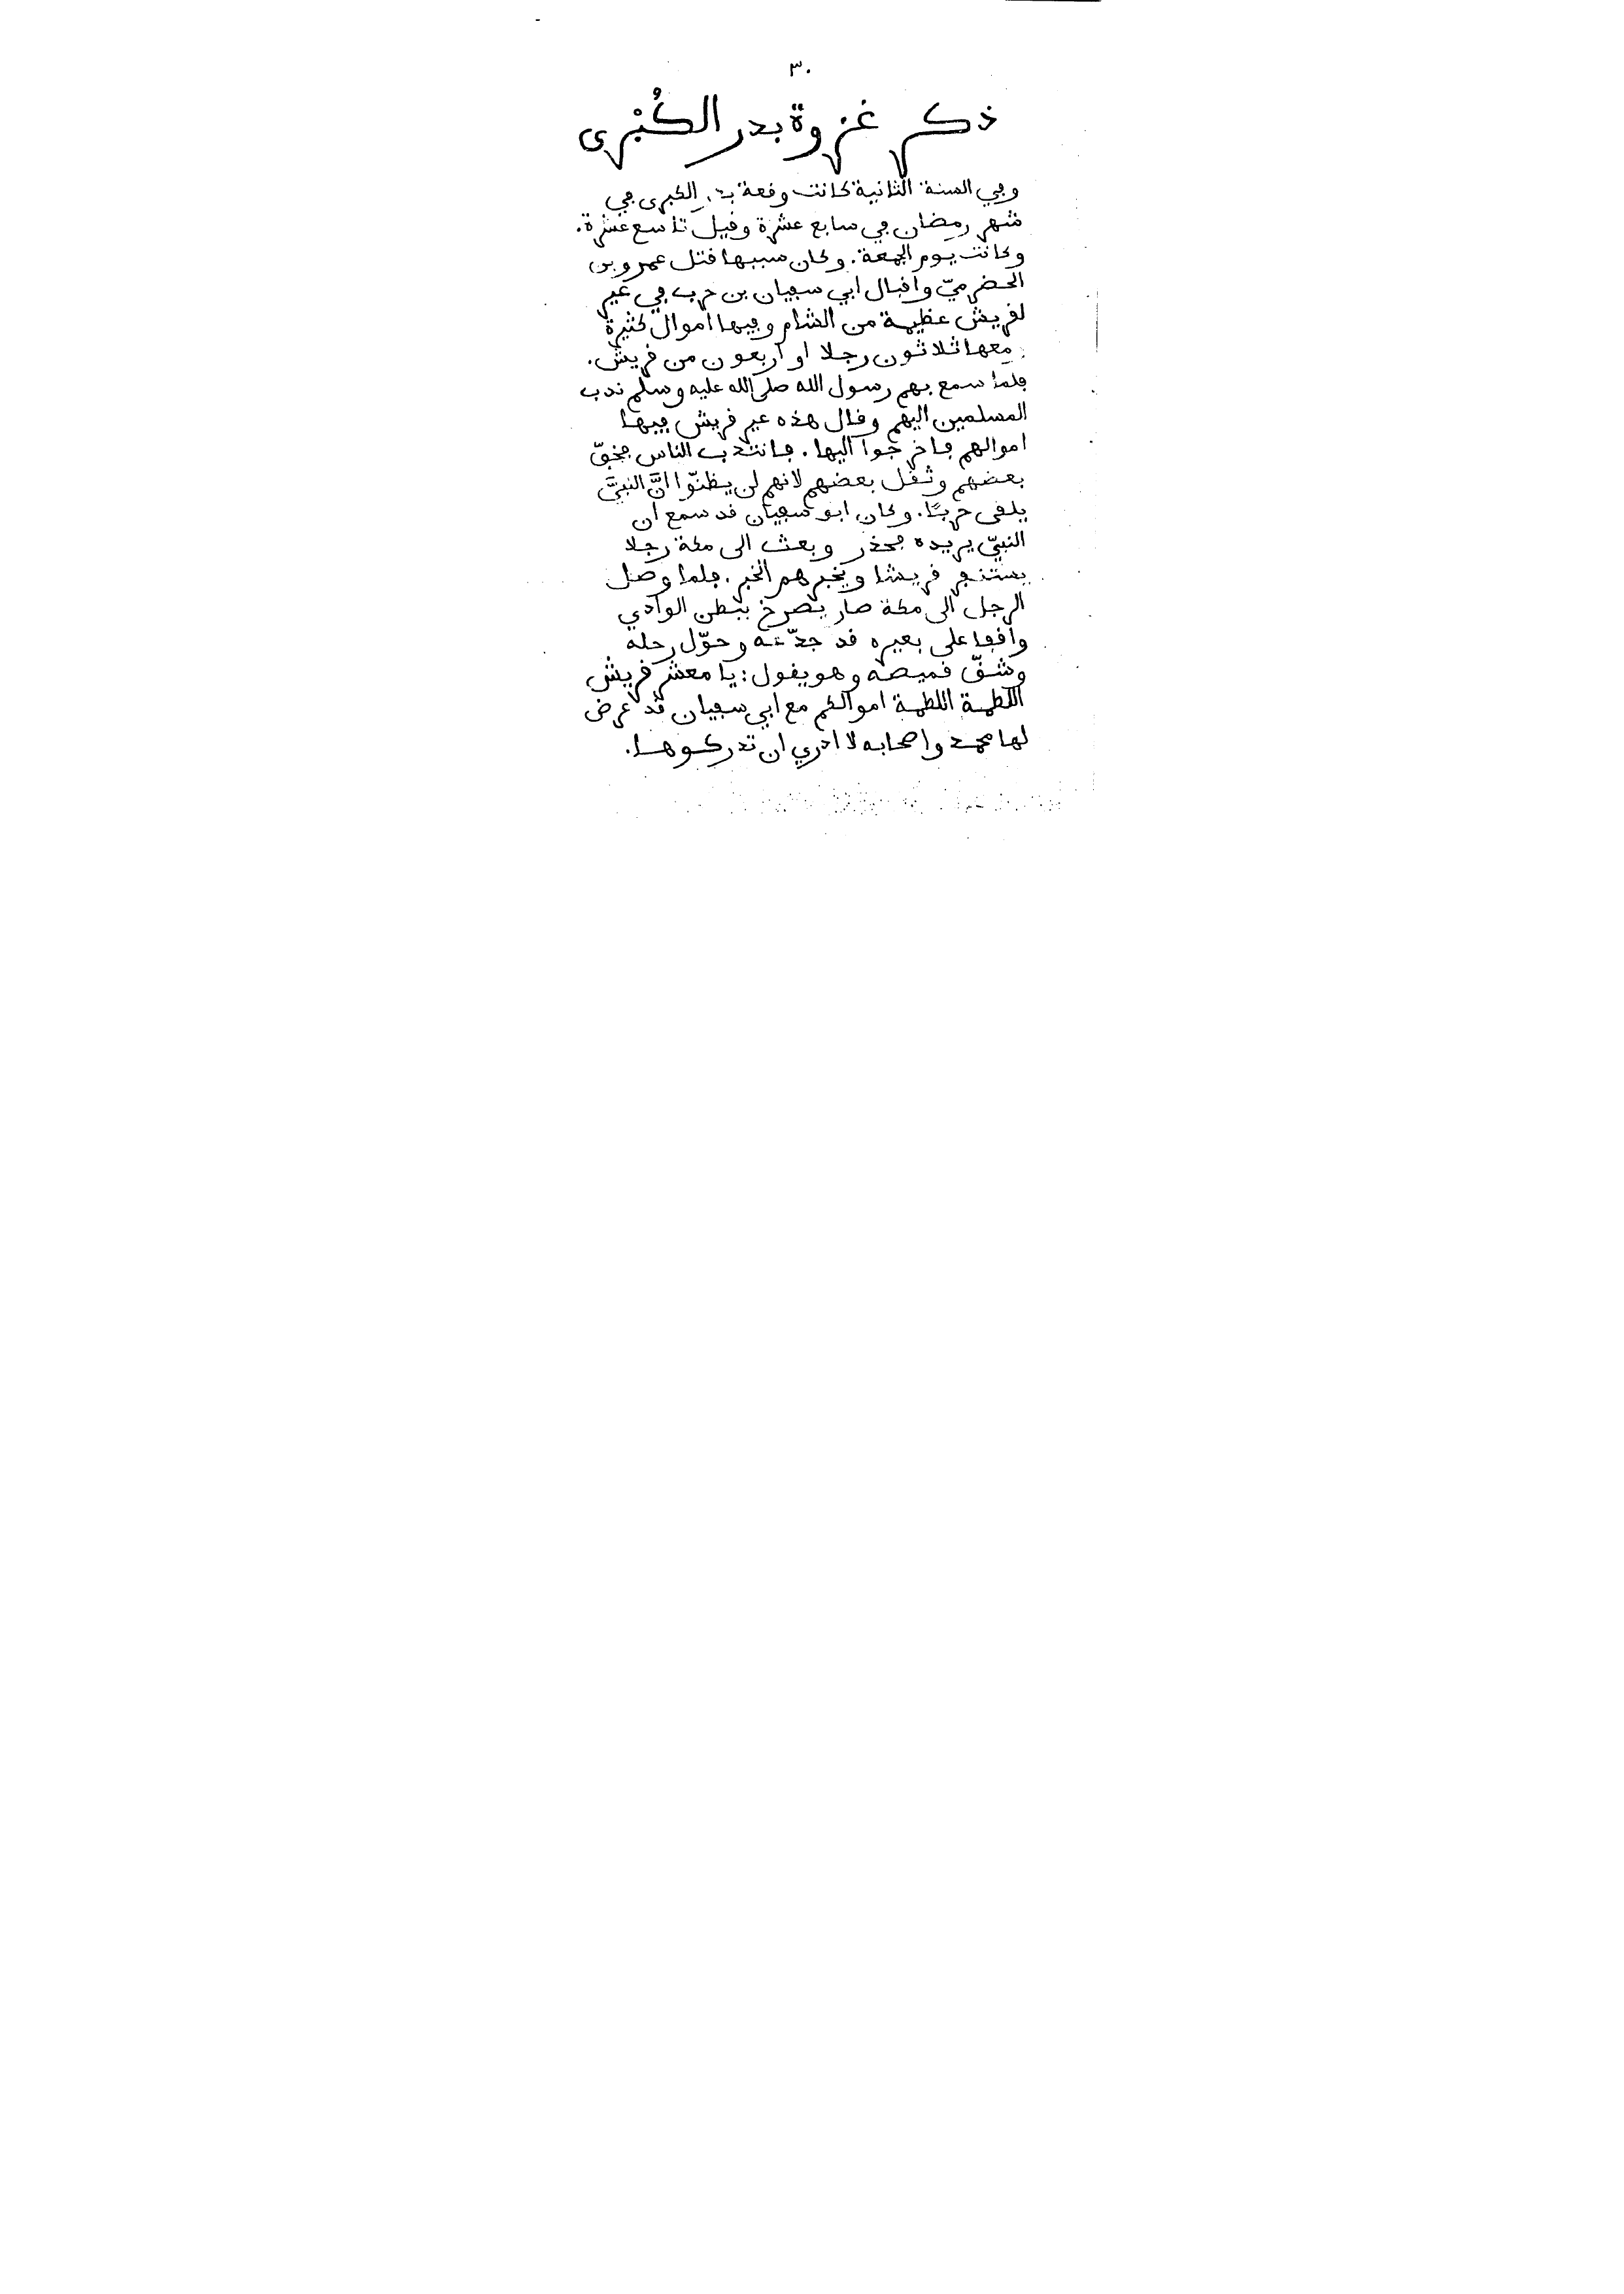 ٣٠
ذكر غزوة بدر الكُبْرى
وفي السنة الثانية كانت وقعة بدر الكبرى في
شهر رمضان في سابع عشرة وقيل تاسع عشرة.
وكانت يوم الجمعة. وكان سببها قتل عمرو بن
الحضرميّ واقبال ابي سفيان بن حرب في عير
لقريش عظيمة من الشام وفيها اموال كثيرة
معها ثلاثون رجلا او اربعون من قريش.
فلما سمع بهم رسول الله صلى الله عليه وسلم ندب
المسلمين اليهم وقال هذه عير قريش فيها
اموالهم فاخرجوا اليها. فانتدب الناس فخفّ
بعضهم وثقل بعضهم لانهم لن يظنّوا انَّ النبيَّ
يلقى حربًا. وكان ابو سفيان قد سمع ان
النبيّ يريده فحذر وبعث الى مكة رجلا
يستنفر قريشا ويخبرهم الخبر. فلما وصل
الرجل الى مكة صار يصرخ ببطن الوادي
واقفا على بعيره قد جدّعه وحوّل رحله
وشقّ قميصه وهو يقول: يا معشر قريش
اللطيمة اللطيمة اموالكم مع ابي سفيان قد عرض
لها محمد واصحابه لا ادري ان تدركوها.